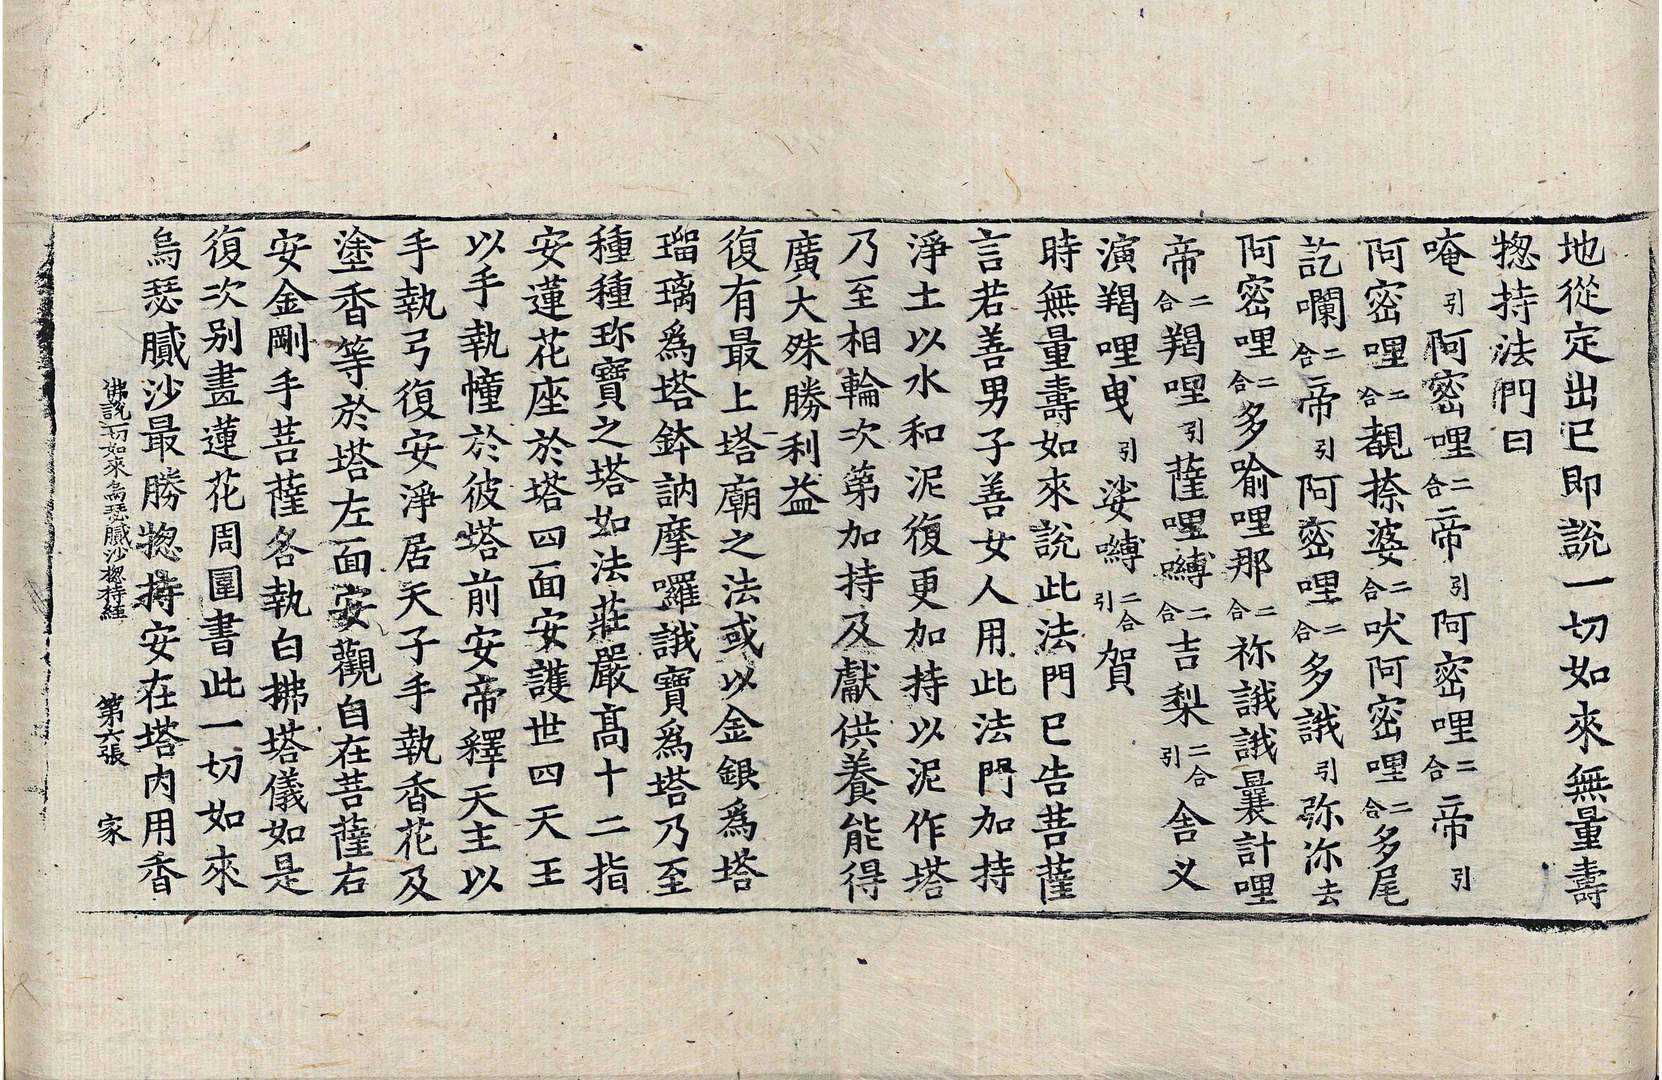 地從定出已即說一切如來無量壽
揔持法門曰
唵引阿密哩二合帝引阿密哩二合帝引
阿密哩二合覩捺婆二合吠阿密哩二合多尾
訖囒二合帝引阿密哩二合多誐引弥沵去
阿密哩二合多喻哩那二合祢誐誐曩計哩
帝二合羯哩引薩哩嚩二合吉梨二合引舍义
演羯哩曳引娑嚩二合引賀
時無量壽如來說此法門已告菩薩
言若善男子善女人用此法門加持
淨土以水和泥復更加持以泥作塔
乃至相輪次第加持及獻供養能得
廣大殊勝利益
復有最上塔廟之法或以金銀爲塔
瑠璃爲塔鉢訥摩囉誐寶爲塔乃至
種種珎寶之塔如法莊嚴高十二指
安蓮花座於塔四面安護世四天王
以手執幢於彼塔前安帝釋天主以
手執弓復安淨居天子手執香花及
塗香等於塔左面安觀自在菩薩右
安金剛手菩薩各執白拂塔儀如是
復次別畫蓮花周圍書此一切如來
烏瑟膩沙最勝揔持安在塔內用香
佛說一切如來烏瑟膩沙揔持經 第六張 家